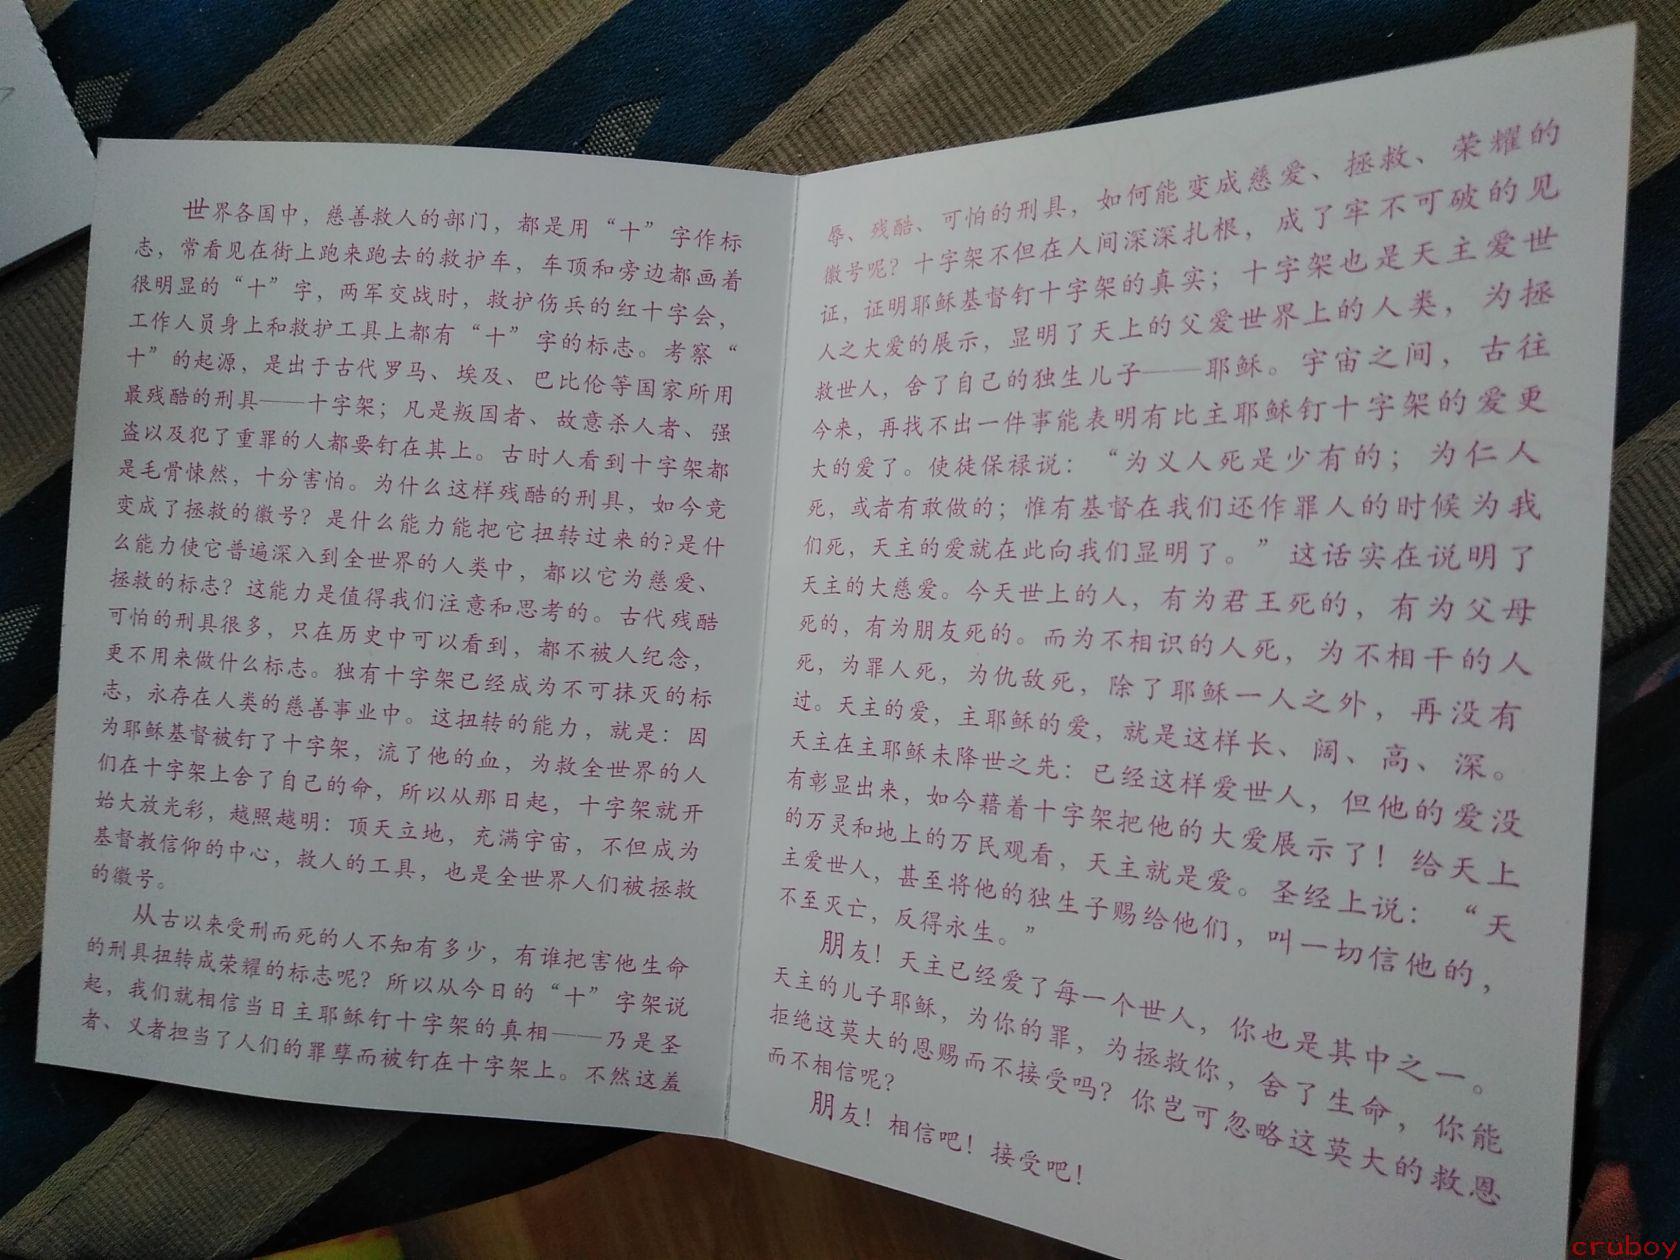 世界各国中，慈善救人的部门，都是用“十”字作标
志，常看见在街上跑来跑去的救护车，车顶和旁边都画着
很明显的“十”字，两军交战时，救护伤兵的红十字会，
工作人员身上和救护工具上都有“十”字的标志。考察“
十”的起源，是出于古代罗马、埃及、巴比伦等国家所用
最残酷的刑具——十字架；凡是叛国者、故意杀人者、强
盗以及犯了重罪的人都要钉在其上。古时人看到十字架都
是毛骨悚然，十分害怕。为什么这样残酷的刑具，如今竞
变成了拯救的徽号？是什么能力能把它扭转过来的?是什
么能力使它普遍深入到全世界的人类中，都以它为慈爱、
拯救的标志？这能力是值得我们注意和思考的。古代残酷
可怕的刑具很多，只在历史中可以看到，都不被人纪念，
更不用来做什么标志。独有十字架已经成为不可抹灭的标
志，永存在人类的慈善事业中。这扭转的能力，就是：因
为耶稣基督被钉了十字架，流了他的血，为救全世界的人
们在十字架上舍了自己的命，所以从那日起，十字架就开
始大放光彩，越照越明：顶天立地，充满宇宙，不但成为
基督教信仰的中心，救人的工具，也是全世界人们被拯救
的徽号。
从古以来受刑而死的人不知有多少，有谁把害他生命
的刑具扭转成荣耀的标志呢？所以从今日的“十”字架说
起，我们就相信当日主耶稣钉十字架的真相——乃是圣
者、义者担当了人们的罪孽而被钉在十字架上。不然这羞
辱、残酷、可怕的刑具，如何能变成慈爱、拯救、荣耀的
徽号呢？十字架不但在人间深深扎根，成了牢不可破的见
证，证明耶稣基督钉十字架的真实；十字架也是天主爱世
人之大爱的展示，显明了天上的父爱世界上的人类，为拯
救世人，舍了自己的独生儿子——耶稣。宇宙之间，古往
今来，再找不出一件事能表明有比主耶稣钉十字架的爱更
大的爱了。使徒保禄说：“为义人死是少有的；为仁人
死，或者有敢做的；惟有基督在我们还作罪人的时候为我
们死，天主的爱就在此向我们显明了。”这话实在说明了
天主的大慈爱。今天世上的人，有为君王死的，有为父母
死的，有为朋友死的。而为不相识的人死，为不相干的人
死，为罪人死，为仇敌死，除了耶稣一人之外，再没有
过。天主的爱，主耶稣的爱，就是这样长、阔、高、深。
天主在主耶稣未降世之先：已经这样爱世人，但他的爱没
有彰显出来，如今藉着十字架把他的大爱展示了！给天上
的万灵和地上的万民观看，天主就是爱。圣经上说：“天
主爱世人，甚至将他的独生子赐给他们，叫一切信他的，
不至灭亡，反得永生。”
朋友！天主已经爱了每一个世人，你也是其中之一。
天主的儿子耶稣，为你的罪，为拯救你，舍了生命，你能
拒绝这莫大的恩赐而不接受吗？你岂可忽略这莫大的救恩
而不相信呢？
朋友！相信吧！接受吧！
cruboy